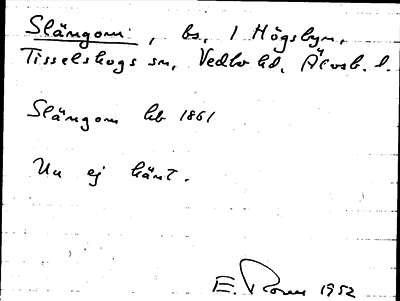 Slängom, bs, 1 Högsbyn,
Tisselskogs sn, Vedbo hd, Älvsb. l.
Slängom hb 1861
Nu ej känt.
E. 1952